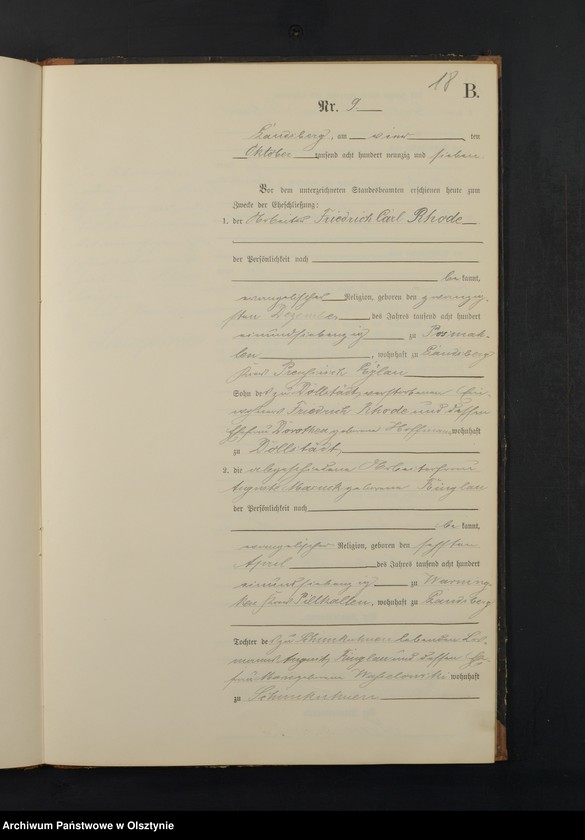 18
B.
Nr. 9
Landsberg, am vier ten
Oktober tausend acht hundert neunzig und sieben
Vor dem unterzeichneten Standesbeamten erschienen heute zum
Zwecke der Eheschließung:
1. der Arbeiter Friedrich Carl Rhode
der Persönlichkeit nach
be kannt,
evangelischer Religion, geboren den zwanzig-
sten Dezember des Jahres tausend acht hundert
einundsiebenzig zu Posmah-
len, wohnhaft zu Landsberg
Kreis Preußisch Eylau
Sohn des zu Döllstädt verstorbenen
Friedrich Rhode und dessen
Ehefrau Dorothea geborene Hoffmann wohnhaft
zu Döllstädt
2. die abgeschiedene Arbeiterfrau
Auguste geborene
der Persönlichkeit nach
be kannt,
evangelischer Religion, geboren den sechsten
April des Jahres tausend acht hundert
einundsiebenzig zu
ken Kreis Pillkallen, wohnhaft zu Landsberg
Tochter des zu lebenden Los-
manns und dessen Ehe-
frau geborene wohnhaft
zu
Archiwum Państwowe w Olsztynie